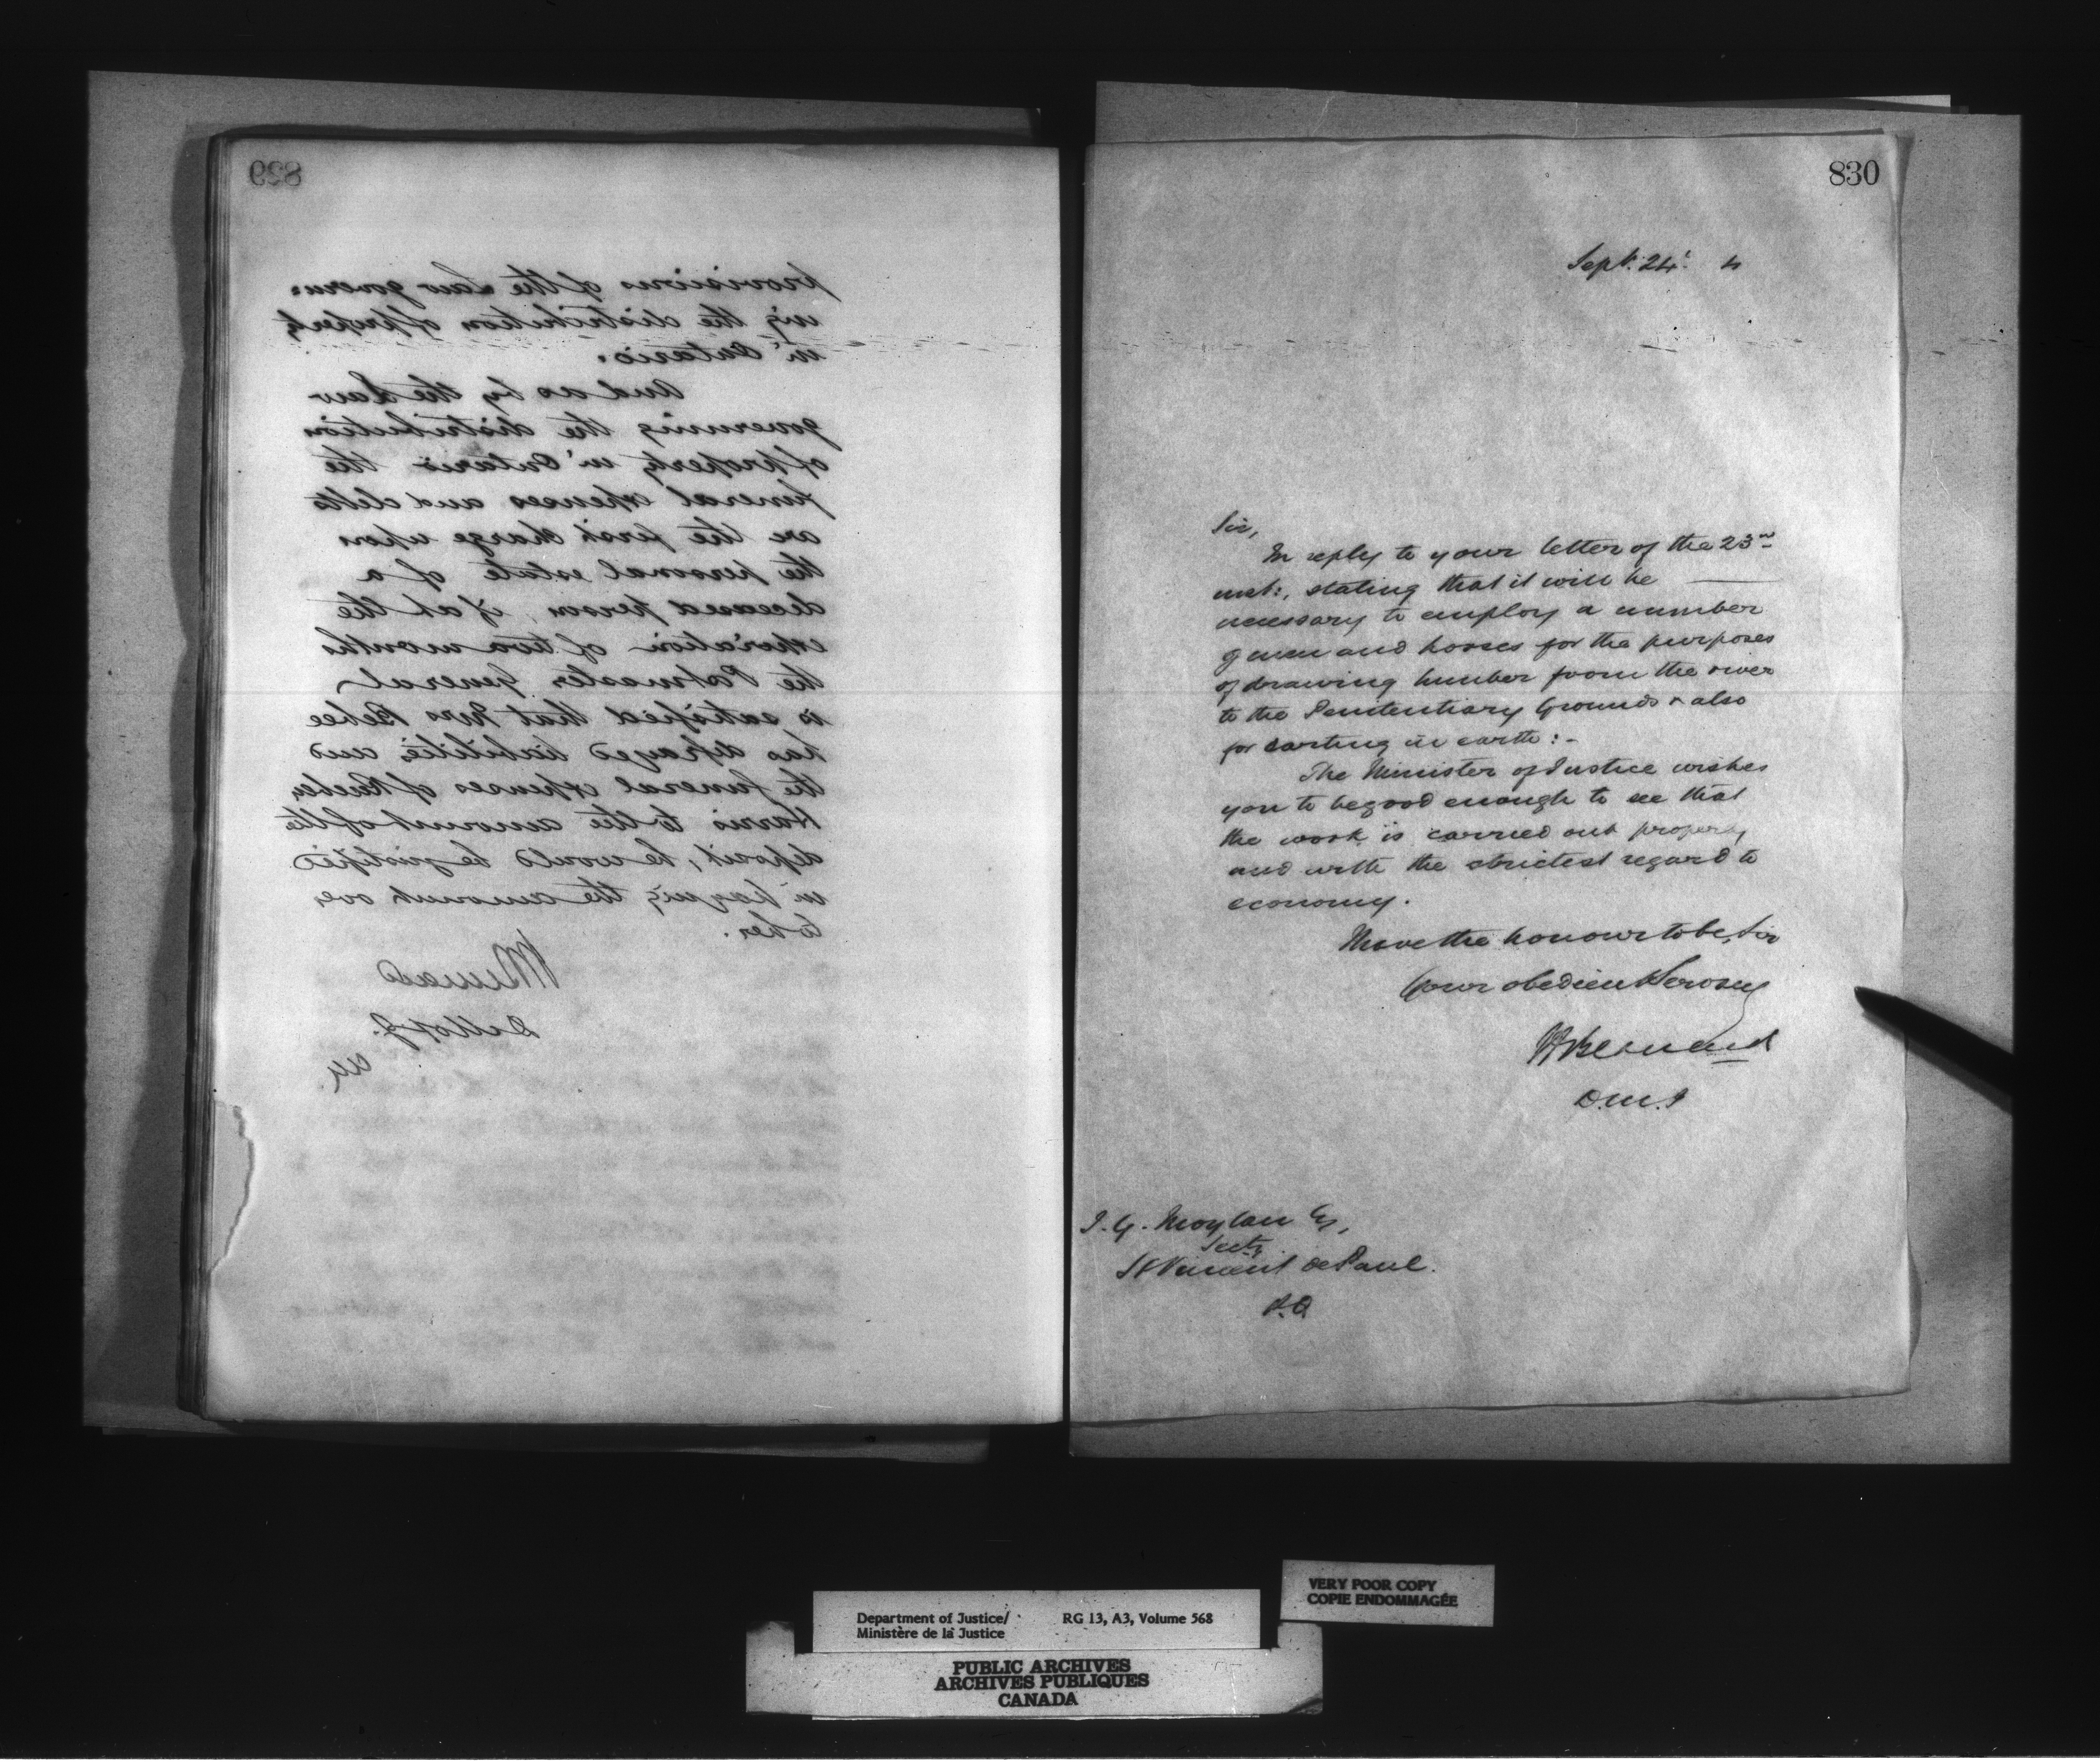 829
provisions of the Law govern:
ing the distribution of property
in Ontario.
And as by the Law
governing the distribution
of property in Ontario the
funeral expenses and debts
are the first charge upon
the personal estate of a
deceased person, if at the
expiration of two months
the Postmaster General
is satisfied that Mrs Bebee
has defrayed liabilities and
the funeral expenses of
Harris to the amount of the
deposit, he would be justified
in paying the amount over
to her.
830
Sept. 24. 4
Sir,
In reply to your letter of the 23rd
inst:, stating that it will be
necessary to employ a number
of men and horses for the purposes
of drawing lumber from the river
to the Penitentiary Grounds & also
for carting in earth:-
The Minister of Justice wishes
you to be good enough to see that
the work is carried out properly
and with the strictest regard to
economy.
I have the honour to be, Sir
Your obedient Servant
H Bernard
D.M.J
J. G. Moylan Esq,
Secty
St Vincent de Paul.
P.Q
VERY POOR COPY
COPIE ENDOMMAGÉE
Department of Justice/ RG 13, A3, Volume 568
Ministère de la Justice
PUBLIC ARCHIVES
ARCHIVES PUBLIQUES
CANADA